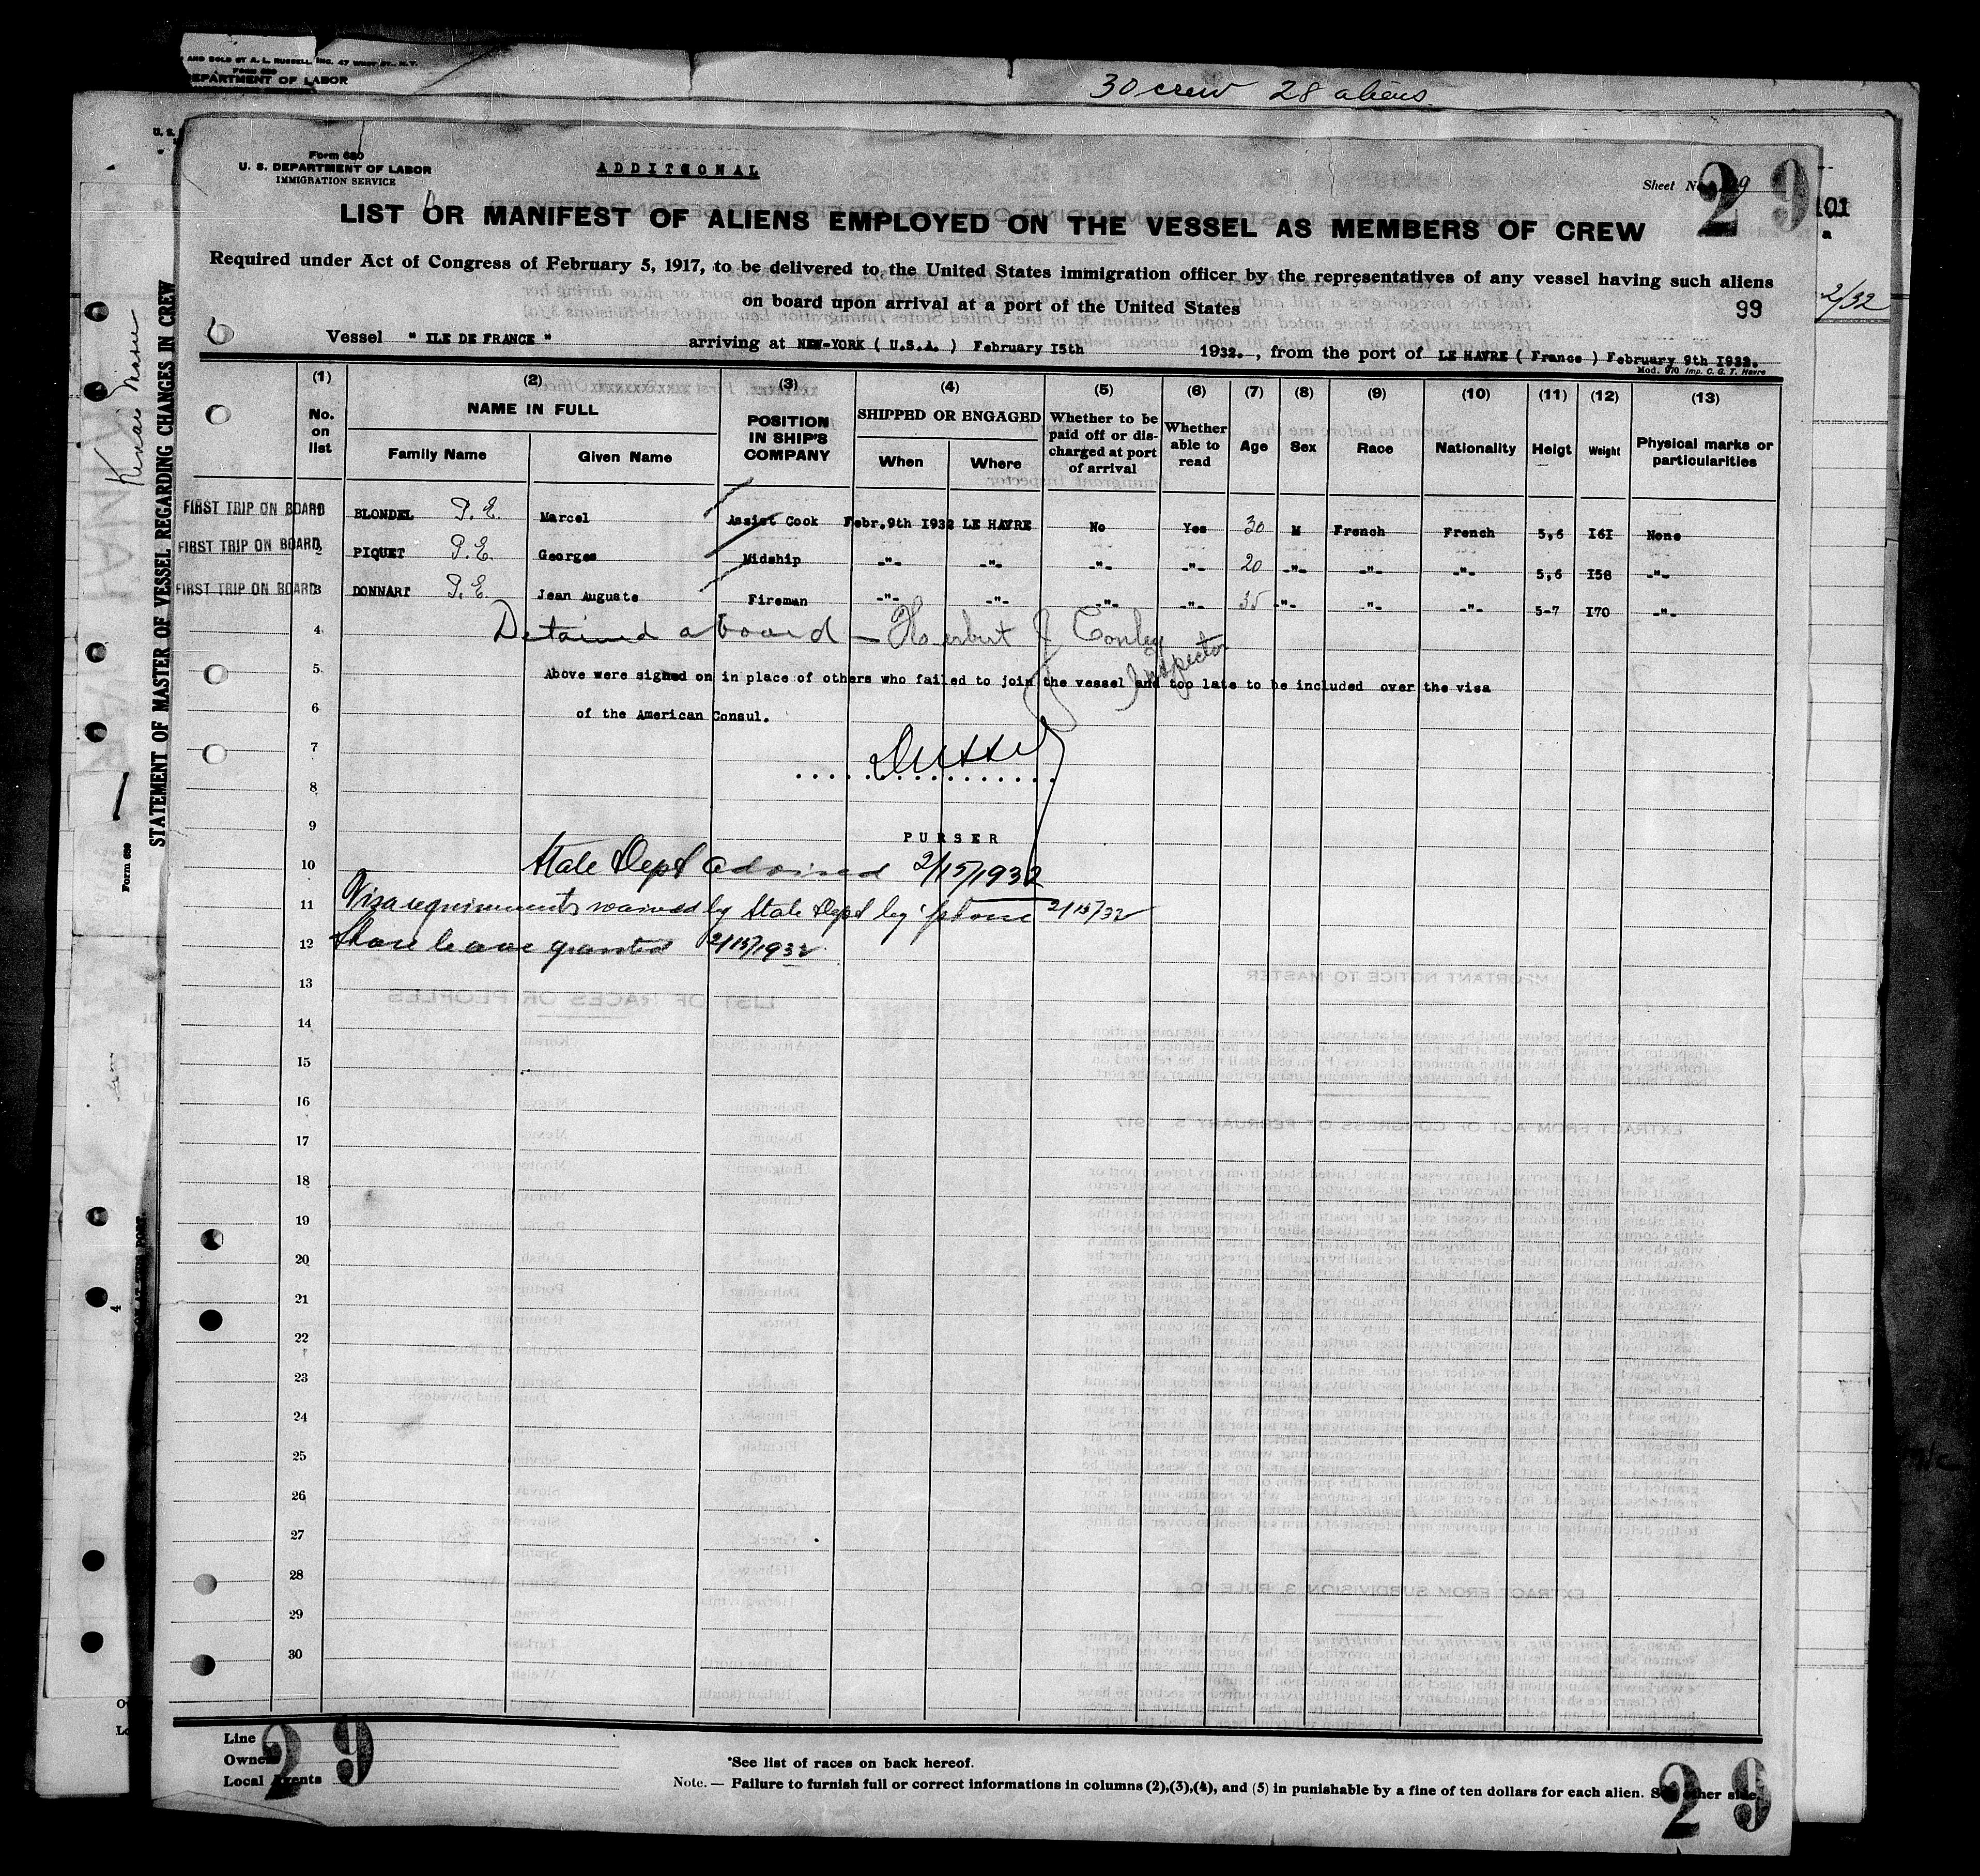 AND SOLD BY A. L. RUSSELL, INC. 47 WEST ST., N.Y.
Form 680
DEPARTMENT OF LABOR
30 crew 28 aliens
Form 680
U. S. DEPARTMENT OF LABOR
IMMIGRATION SERVICE
ADDITIONAL
Sheet No. 29
29
101
a
LIST OR MANIFEST OF ALIENS EMPLOYED ON THE VESSEL AS MEMBERS OF CREW
Required under Act of Congress of February 5, 1917, to be delivered to the United States immigration officer by the representatives of any vessel having such aliens
on board upon arrival at a port of the United States
99
2/32
Vessel " ILE DE FRANCE " arriving at NEW-YORK ( U.S.A. ) February I5th 1932. , from the port of LE HAVRE ( France ) February 9th I932.
Mod. 970 Imp. C. G. T. Havre
STATEMENT OF MASTER OF VESSEL REGARDING CHANGES IN CREW
Form 689
(1) (2) (3) (4) (5) (6) (7) (8) (9) (10) (11) (12) (13)
No. on list
NAME IN FULL
Family Name
Given Name
POSITION IN SHIP'S COMPANY
SHIPPED OR ENGAGED
When
Where
Whether to be paid off or dis-charged at port of arrival
Whether able to read
Age
Sex
Race
Nationality
Helgt
Weight
Physical marks or particularities
FIRST TRIP ON BOARD BLONDEL P.E. Marcel Assist Cook Febr.9th I932 LE HAVRE No Yes 30 M French French 5,6 I6I None
FIRST TRIP ON BOARD 2 PIQUET P.E. Georges Midship -"- -"- -"- -"- 20 -"- -"- -"- 5,6 I58 -"-
FIRST TRIP ON BOARD 3 DONNART P.E. Jean Auguste Fireman -"- -"- -"- -"- 35 -"- -"- -"- 5-7 I70 -"-
4 Detained aboard – Herbert J Conley
Inspector
5 Above were signed on in place of others who failed to join the vessel and too late to be included over the visa
6 of the American Consul.
7
8
9 PURSER
10 State Dept advised 2/15/1932
11 Visa requirements waived by State Dept by 'phone 2/15/32
12 Shore leave granted 2/15/1932
13
14
15
16
17
18
19
20
21
22
23
24
25
26
27
28
29
30
Line
Owners
Local Agents
29
*See list of races on back hereof.
Note. — Failure to furnish full or correct informations in columns (2),(3),(4), and (5) in punishable by a fine of ten dollars for each alien. See other side.
29